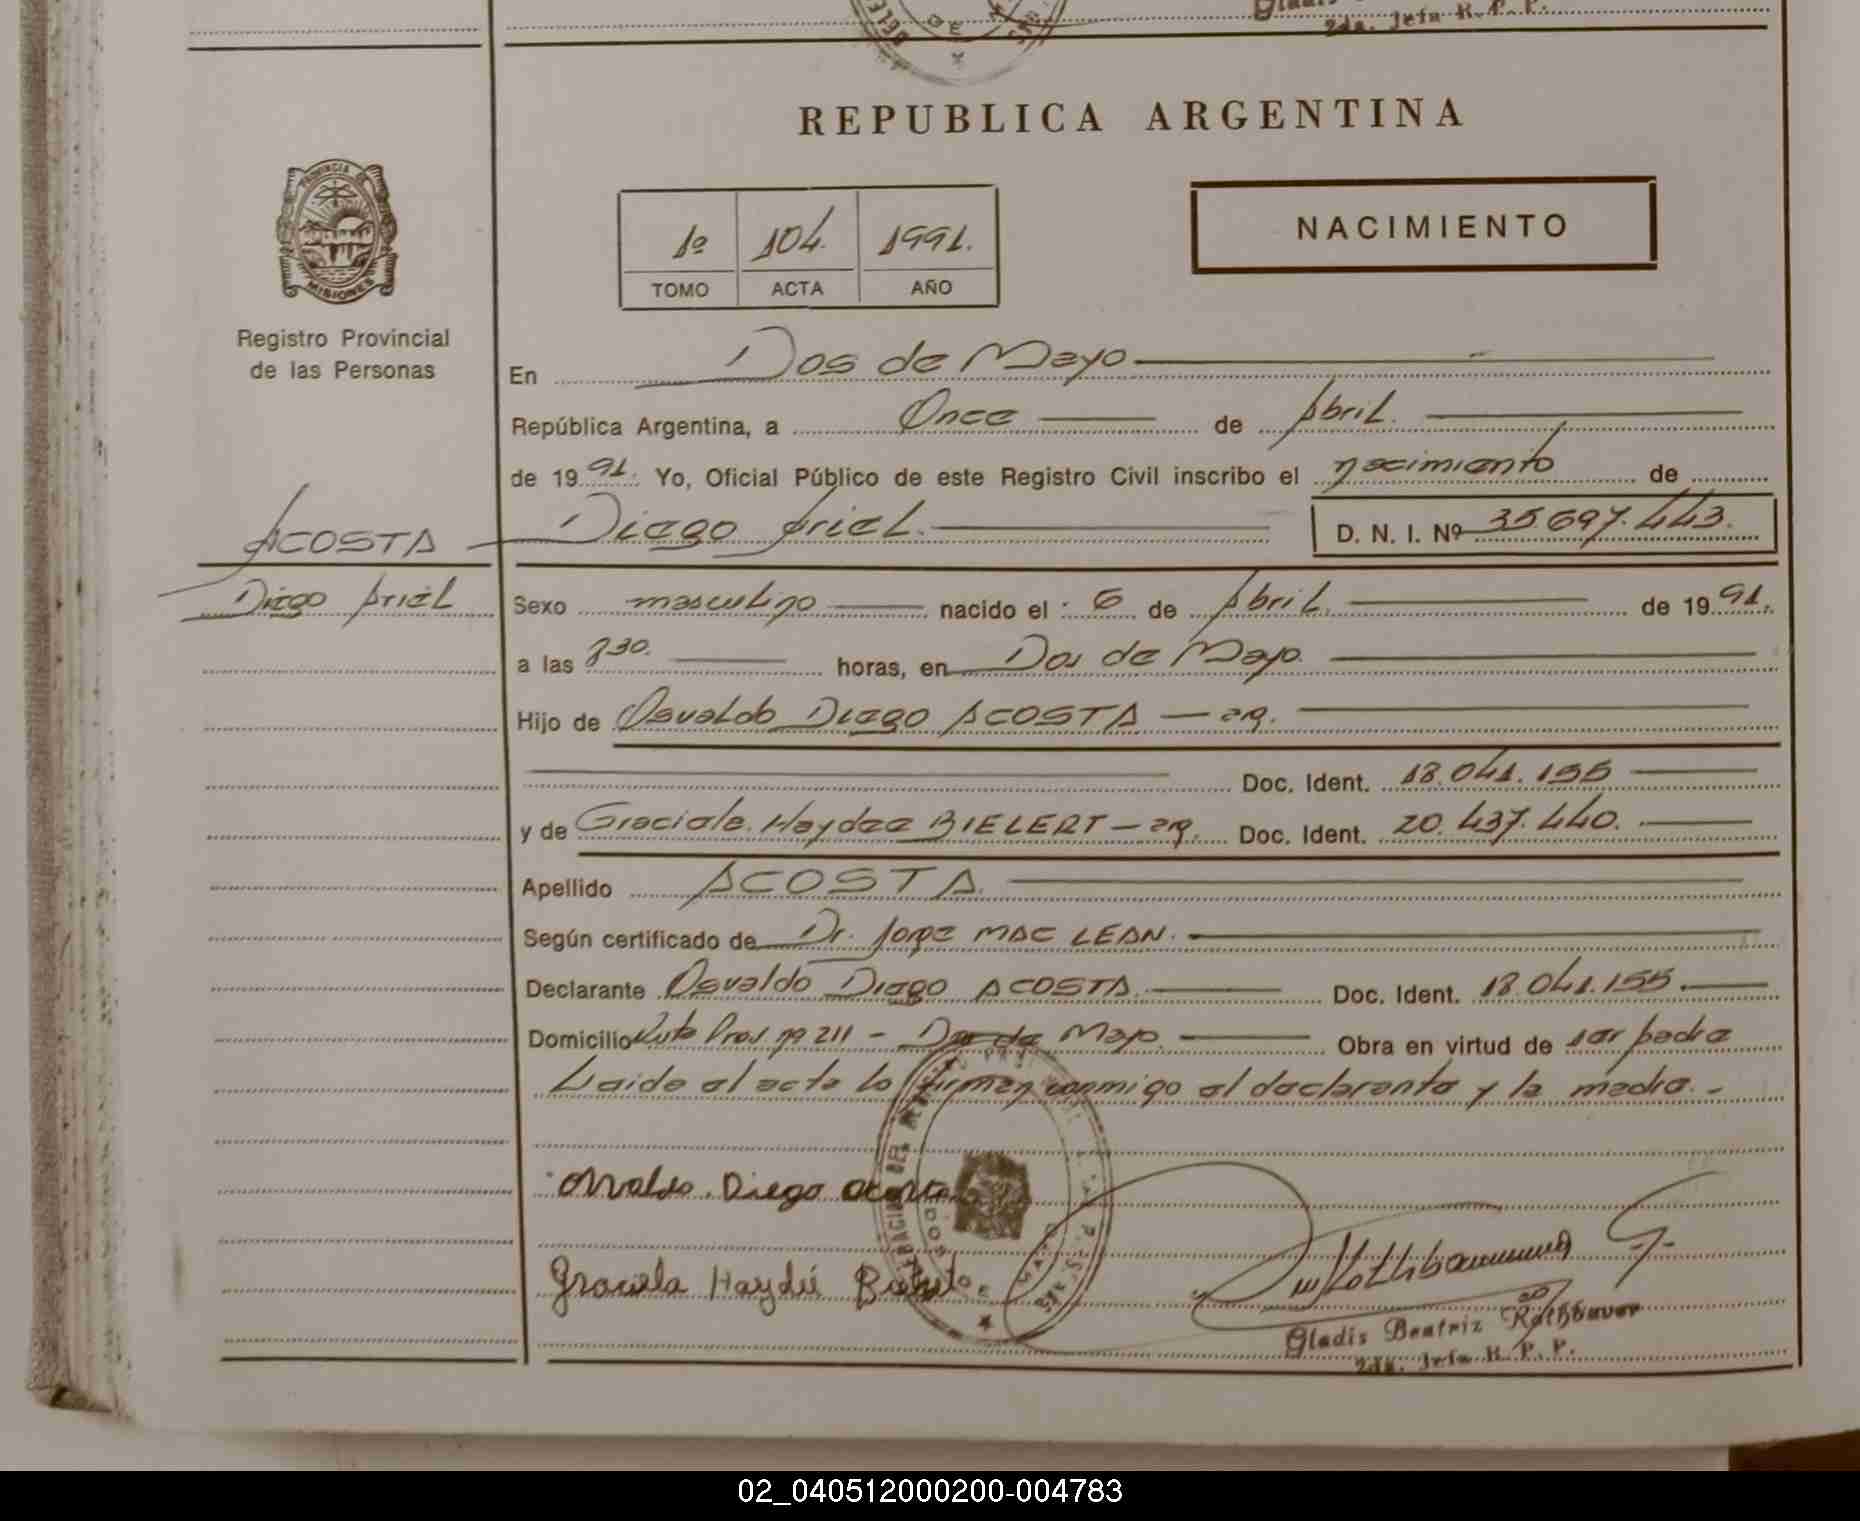 Gladis
2da. Jefa R. P. P.
REPUBLICA ARGENTINA
PROVINCIA DE
MISIONES
NACIMIENTO
1º 104. 1991.
TOMO ACTA AÑO
Registro Provincial
de las Personas
En Dos de Mayo
República Argentina, a Once de Abril.
de 1991. Yo, Oficial Público de este Registro Civil inscribo el nacimiento de
ACOSTA Diego Ariel. D. N. I. Nº 35.697.443.
Diego Ariel
Sexo masculino nacido el 6 de Abril. de 1991.
a las 730. horas, en Dos de Mayo.
Hijo de Osvaldo Diego ACOSTA - arg.
Doc. Ident. 18.041.155
y de Graciela Haydee BIELERT - arg. Doc. Ident. 20.437.440.
Apellido ACOSTA.
Según certificado de Dr. Jorge MAC LEAN.
Declarante Osvaldo Diego ACOSTA. Doc. Ident. 18.041.155.
Domicilio Ruta Prov. nº 211 - Dos de Mayo. Obra en virtud de ser padre
Leido el acta lo firman conmigo el declarante y la madre.-
Osvaldo. Diego Acosta
Graciela Haydeé Bielert
Gladis Beatriz Rothbauer
2da. Jefa R. P. P.
02_040512000200-004783